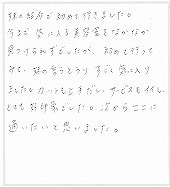 妹の紹介で初めて行きました。
今まで気に入る美容室をなかなか
見つけられずでしたが、初めて行って
みて、妹の言うとうり すごく気に入り
ました。カットも上手だし、サービスもイイし、
とても好印象でした。次からここに
通いたいと思いました。